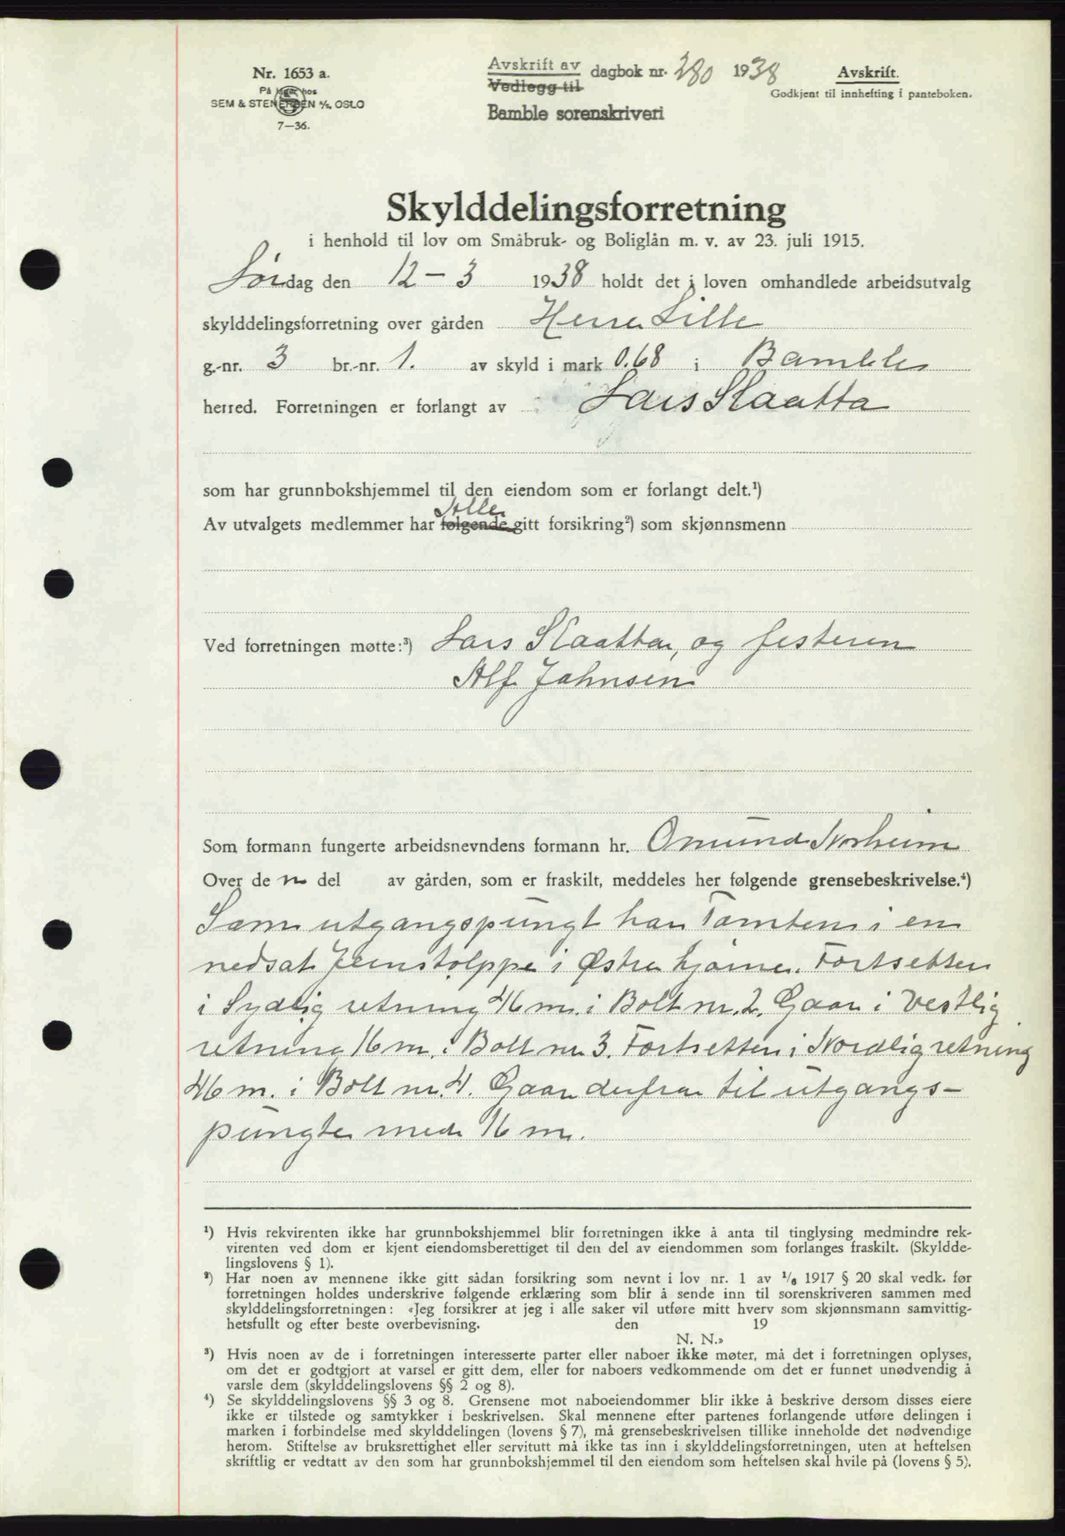 Nr. 1653 a.
På lager hos
SEM & STENERSEN A/S, OSLO
7—36.
Avskrift av
Vedlegg til
dagbok nr. 280 1938
Bamble sorenskriveri
Avskrift.
Godkjent til innhefting i panteboken.
Skylddelingsforretning
i henhold til lov om Småbruk- og Boliglån m. v. av 23. juli 1915.
Lørdag den 12 – 3 1938 holdt det i loven omhandlede arbeidsutvalg
skylddelingsforretning over gården Herre Lille
g.-nr. 3 br.-nr. 1. av skyld i mark 0.68 i Bamble
herred. Forretningen er forlangt av Lars Slaatta
som har grunnbokshjemmel til den eiendom som er forlangt delt.¹)
Alle
Av utvalgets medlemmer har følgende gitt forsikring²) som skjønnsmenn
Ved forretningen møtte:³) Lars Slaatta, og festeren
Alf Johnsen
Som formann fungerte arbeidsnevndens formann hr. Omund Norheim
Over de n del av gården, som er fraskilt, meddeles her følgende grensebeskrivelse.⁴)
Som utgangspungt har Tomten i en
nedsat Jernstolppe i Østre hjørne. Fortsetter
i Sydlig retning 46 m. i Bolt nr. 2. Gaar i Vestlig
retning 16 m. i Bolt nr 3. Fortsetter i Nordlig retning
46 m. i Bolt nr. 4. Gaar derfra til utgangs-
pungte med 16 m.
¹) Hvis rekvirenten ikke har grunnbokshjemmel blir forretningen ikke å anta til tinglysing medmindre rek-
virenten ved dom er kjent eiendomsberettiget til den del av eiendommen som forlanges fraskilt. (Skyldde-
lingslovens § 1).
²) Har noen av mennene ikke gitt sådan forsikring som nevnt i lov nr. 1 av 1/6 1917 § 20 skal vedk. før
forretningen holdes underskrive følgende erklæring som blir å sende inn til sorenskriveren sammen med
skylddelingsforretningen: «Jeg forsikrer at jeg i alle saker vil utføre mitt hverv som skjønnsmann samvittig-
hetsfullt og efter beste overbevisning. den 19
N. N.»
³) Hvis noen av de i forretningen interesserte parter eller naboer ikke møter, må det i forretningen oplyses,
om det er godtgjort at varsel er gitt dem, eller for naboers vedkommende om det er funnet unødvendig å
varsle dem (skylddelingslovens §§ 2 og 8).
⁴) Se skylddelingslovens §§ 3 og 8. Grensene mot naboeiendommer blir ikke å beskrive dersom disses eiere
ikke er tilstede og samtykker i beskrivelsen. Skal mennene efter partenes forlangende utføre delingen i
marken i forbindelse med skylddelingen (lovens § 7), må grensebeskrivelsen tillike inneholde det nødvendige
herom. Stiftelse av bruksrettighet eller servitutt må ikke tas inn i skylddelingsforretningen, uten at heftelsen
skriftlig er vedtatt av den som har grunnbokshjemmel til den eiendom som heftelsen skal hvile på (lovens § 5).